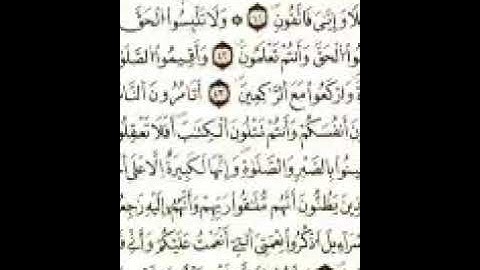 لًا وَإِيَّٰىَ فَٱتَّقُونِ ۝٤١ ۞ وَلَا تَلْبِسُوا۟ ٱلْحَقَّ
مُوا۟ ٱلْحَقَّ وَأَنتُمْ تَعْلَمُونَ ۝٤٢ وَأَقِيمُوا۟ ٱلصَّلَوٰ
ةَ وَٱرْكَعُوا۟ مَعَ ٱلرَّٰكِعِينَ ۝٤٣ أَتَأْمُرُونَ ٱلنَّاسَ
نَ أَنفُسَكُمْ وَأَنتُمْ تَتْلُونَ ٱلْكِتَٰبَ ۚ أَفَلَا تَعْقِلُو
عِينُوا۟ بِٱلصَّبْرِ وَٱلصَّلَوٰةِ ۚ وَإِنَّهَا لَكَبِيرَةٌ إِلَّا عَلَى ٱلْ
ذِينَ يَظُنُّونَ أَنَّهُم مُّلَٰقُوا۟ رَبِّهِمْ وَأَنَّهُمْ إِلَيْهِ رَٰجِعُ
سْرَٰٓءِيلَ ٱذْكُرُوا۟ نِعْمَتِىَ ٱلَّتِىٓ أَنْعَمْتُ عَلَيْكُمْ وَأَنِّى فَ